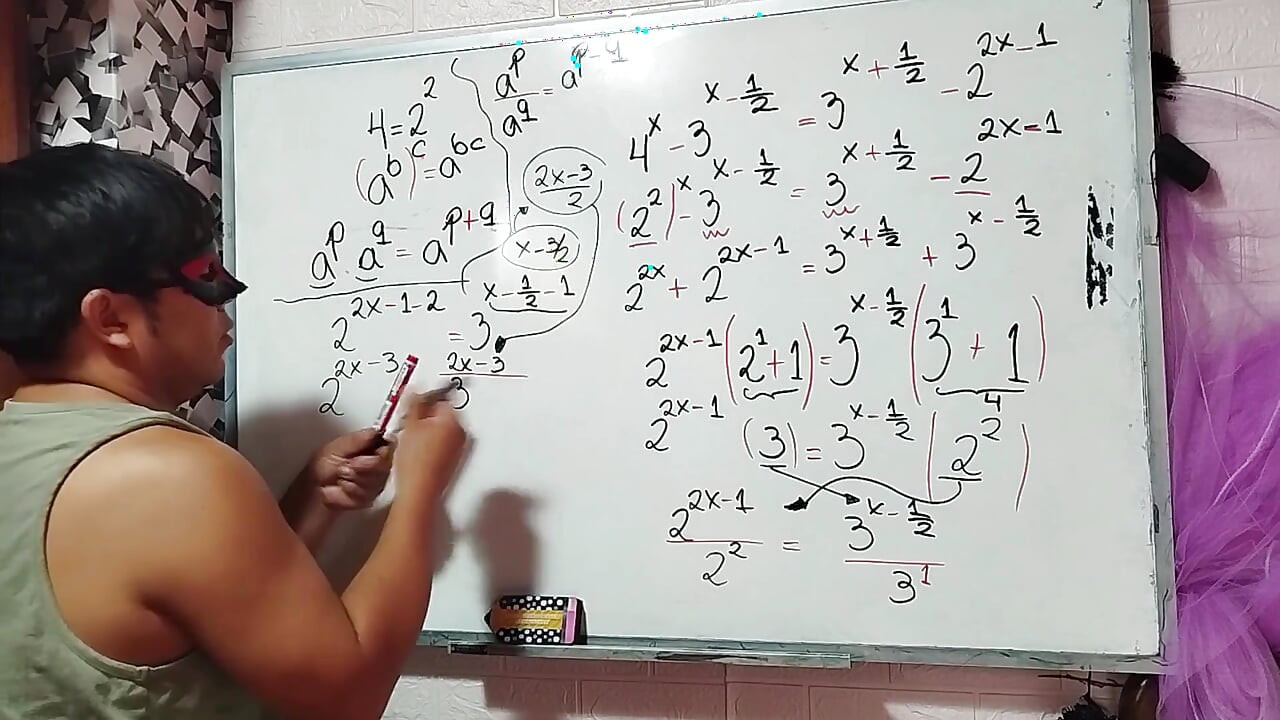 4 = 2^2
(a^b)^c = a^{bc}
a^p · a^q = a^{p+q}
a^p/a^q = a^{p-q}
(2x-3)/2
x-3/2
x-1/2-1
2^{2x-1-2} = 3
2^{2x-3} 3^{(2x-3)/}
4^x - 3^{x-1/2} = 3^{x+1/2} - 2^{2x-1}
(2^2)^x - 3^{x-1/2} = 3^{x+1/2} - 2^{2x-1}
2^{2x} + 2^{2x-1} = 3^{x+1/2} + 3^{x-1/2}
2^{2x-1}(2^1+1) = 3^{x-1/2}(3^1+1)
4
2^{2x-1}(3) = 3^{x-1/2}(2^2)
2^{2x-1}/2^2 = 3^{x-1/2}/3^1